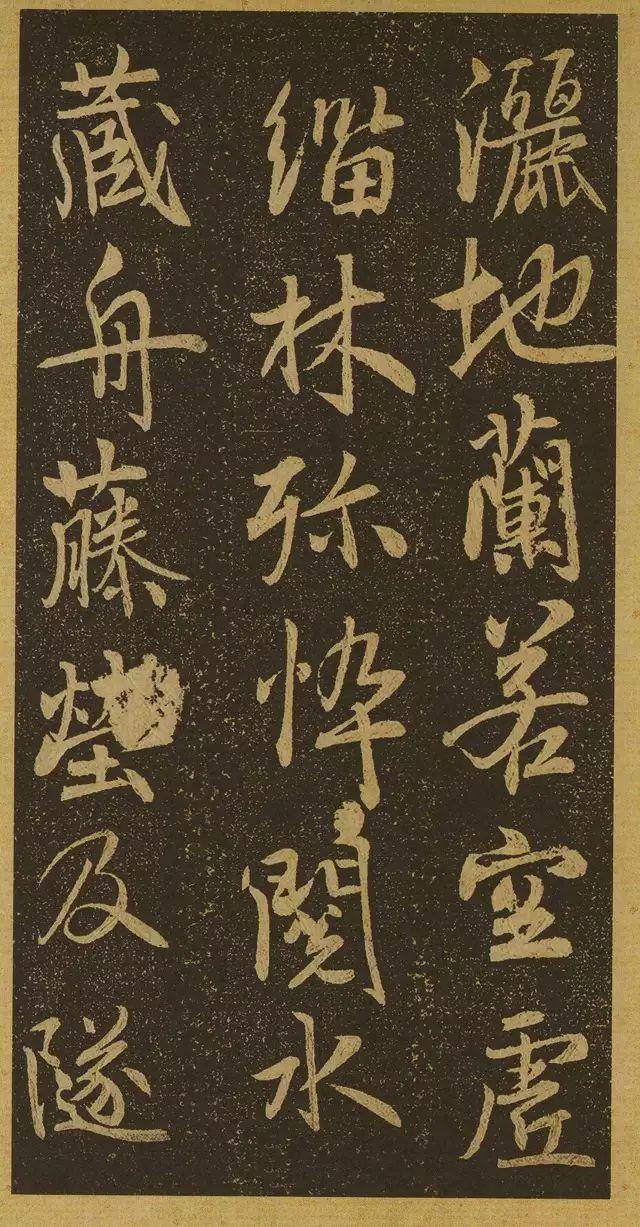 灑地蘭若空虛
緇林弥悴閱水
藏舟藤及隧